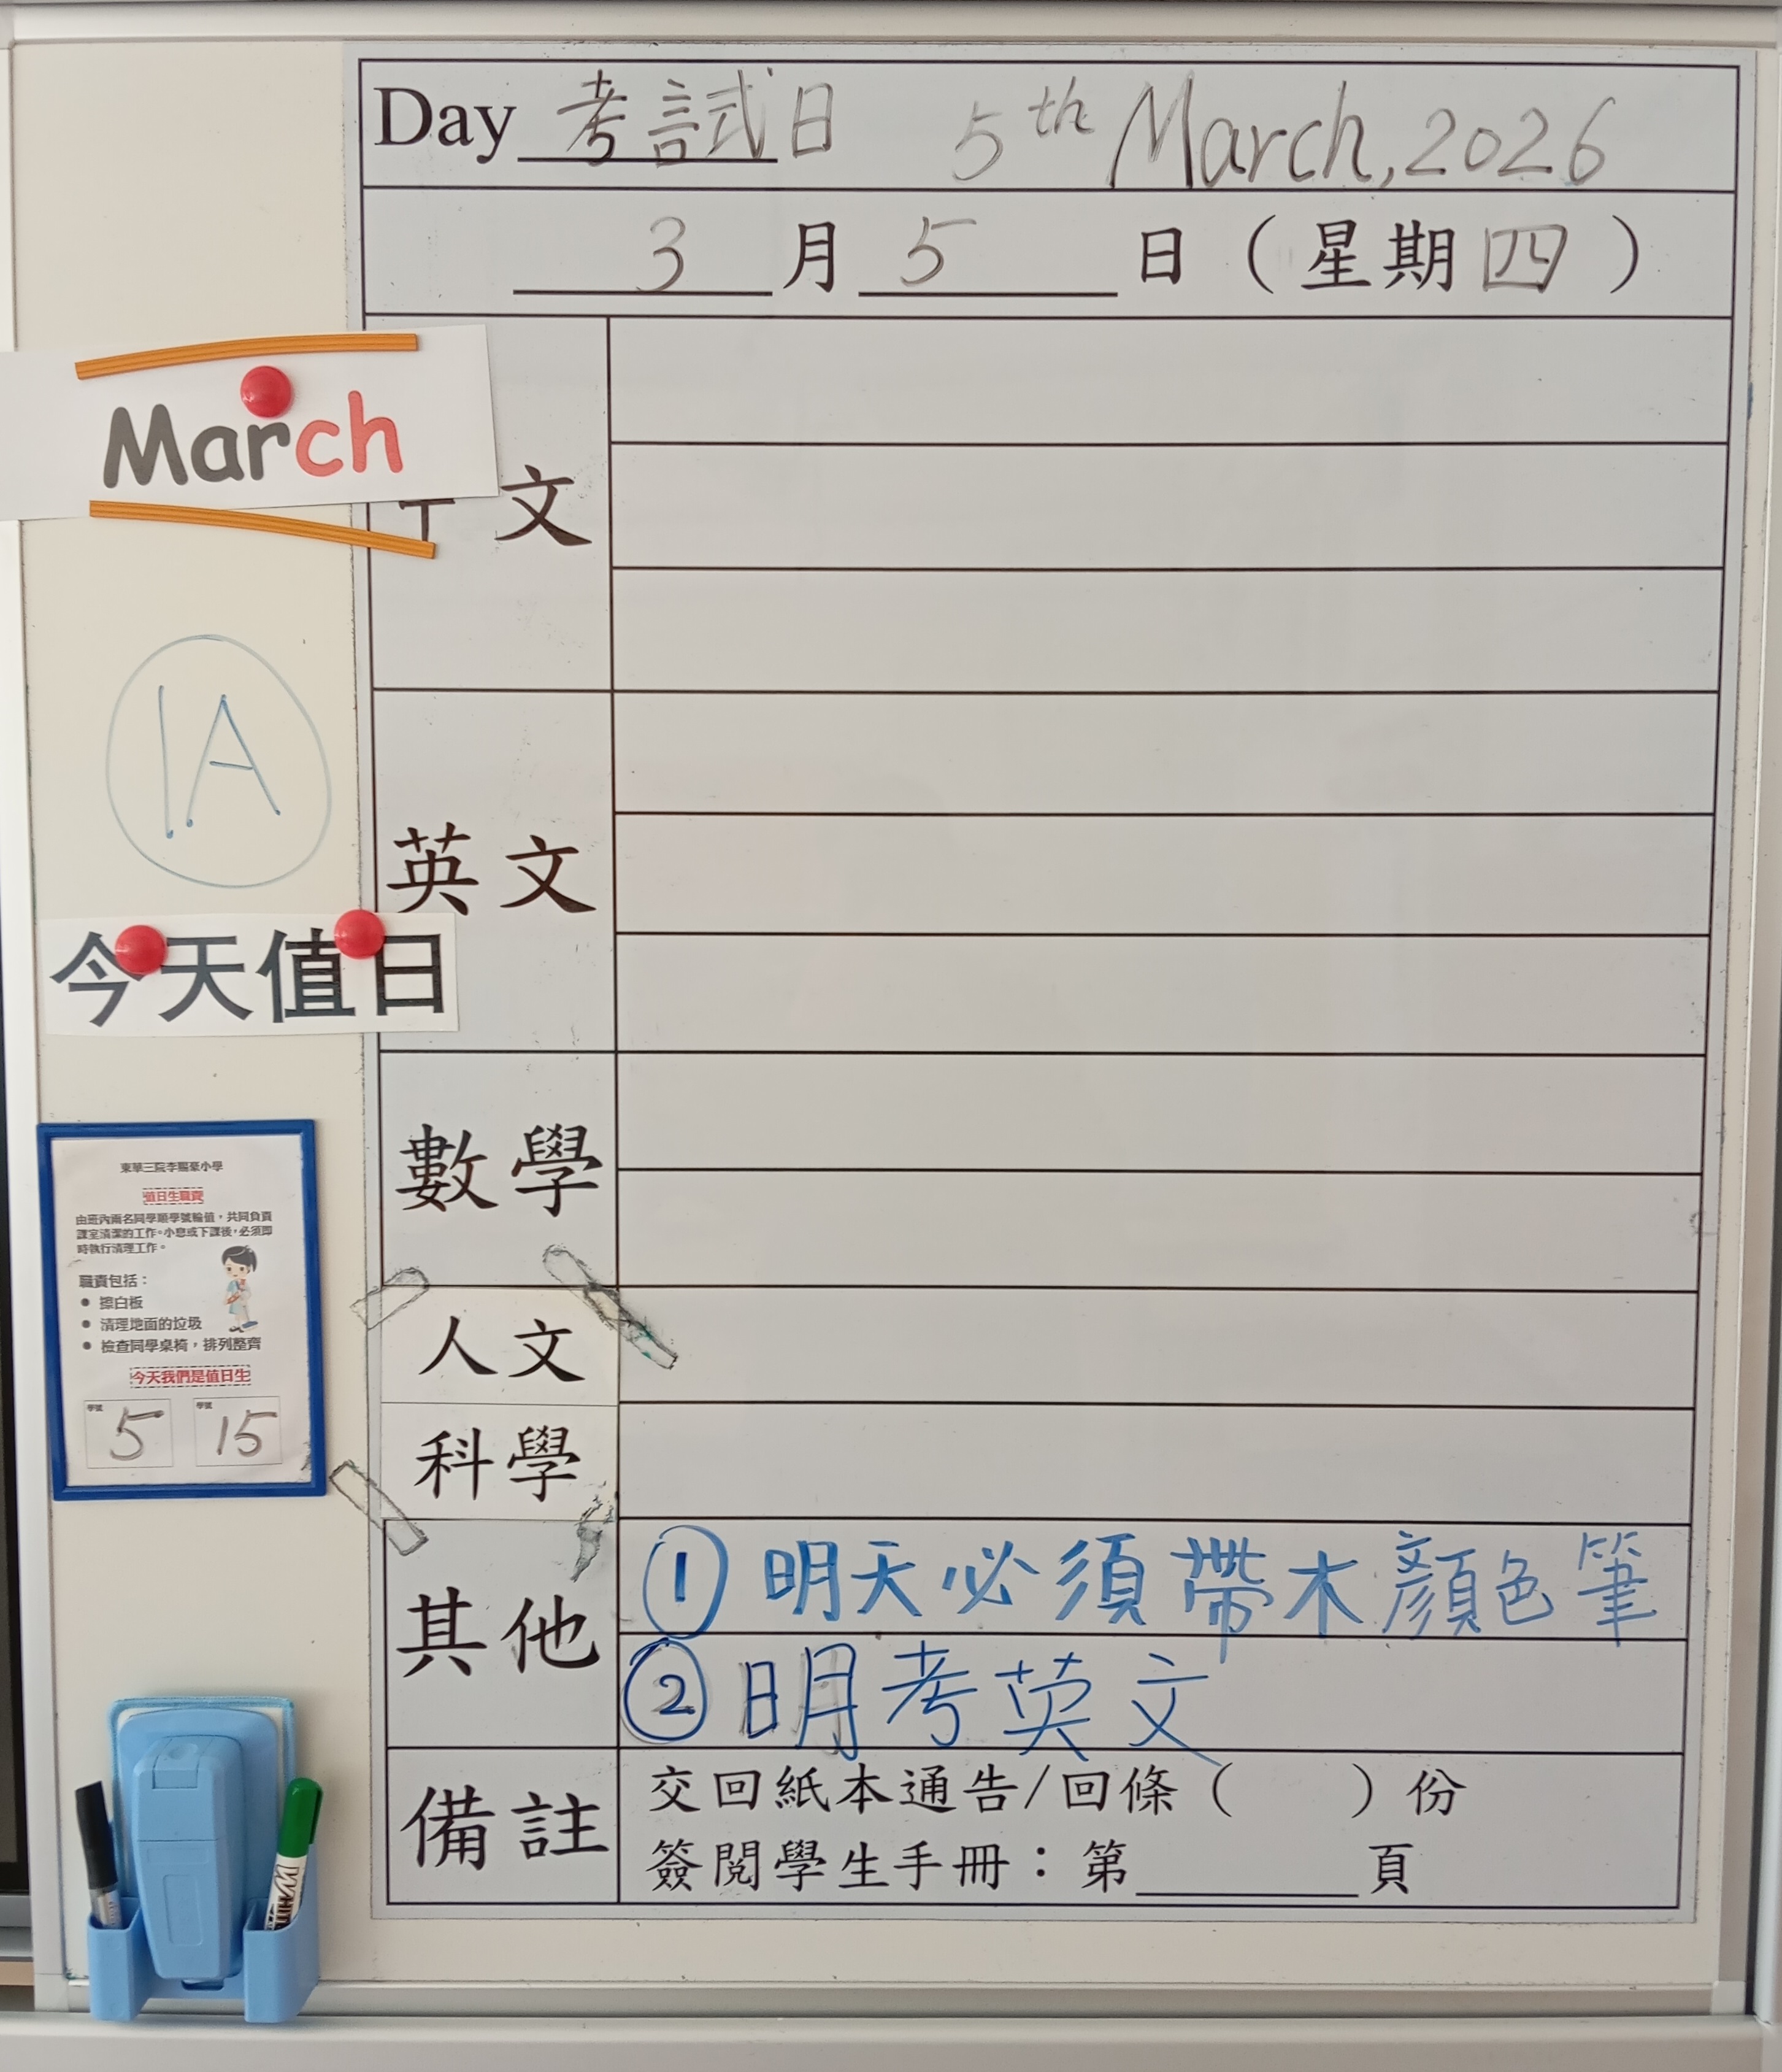 Day 考試日 5th March, 2026
3 月 5 日（星期四）
March
文
1A
英文
今天值日
數學
東華三院李賜豪小學
值日生職責
由班內兩名同學順學號輪值，共同負責
課室清潔的工作。小息或下課後，必須即
時執行清理工作。
職責包括：
● 擦白板
● 清理地面的垃圾
● 檢查同學桌椅，排列整齊
今天我們是值日生
學號 5 學號 15
人文
科學
其他
① 明天必須帶木顏色筆
② 明考英文
備註
交回紙本通告/回條（ ）份
簽閱學生手冊：第______頁